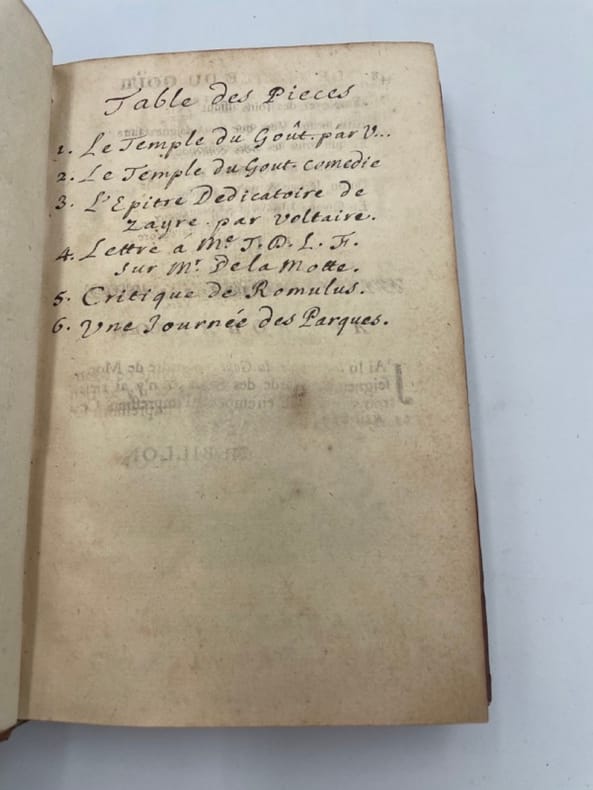 Table des Pieces
1. Le Temple du Goût par V...
2. Le Temple du Gout comedie
3. L'Epitre Dedicatoire de
Zayre par Voltaire.
4. Lettre à Me T. D. L. F.
sur Mr. De la Motte.
5. Critique de Romulus.
6. Une Journée des Parques.